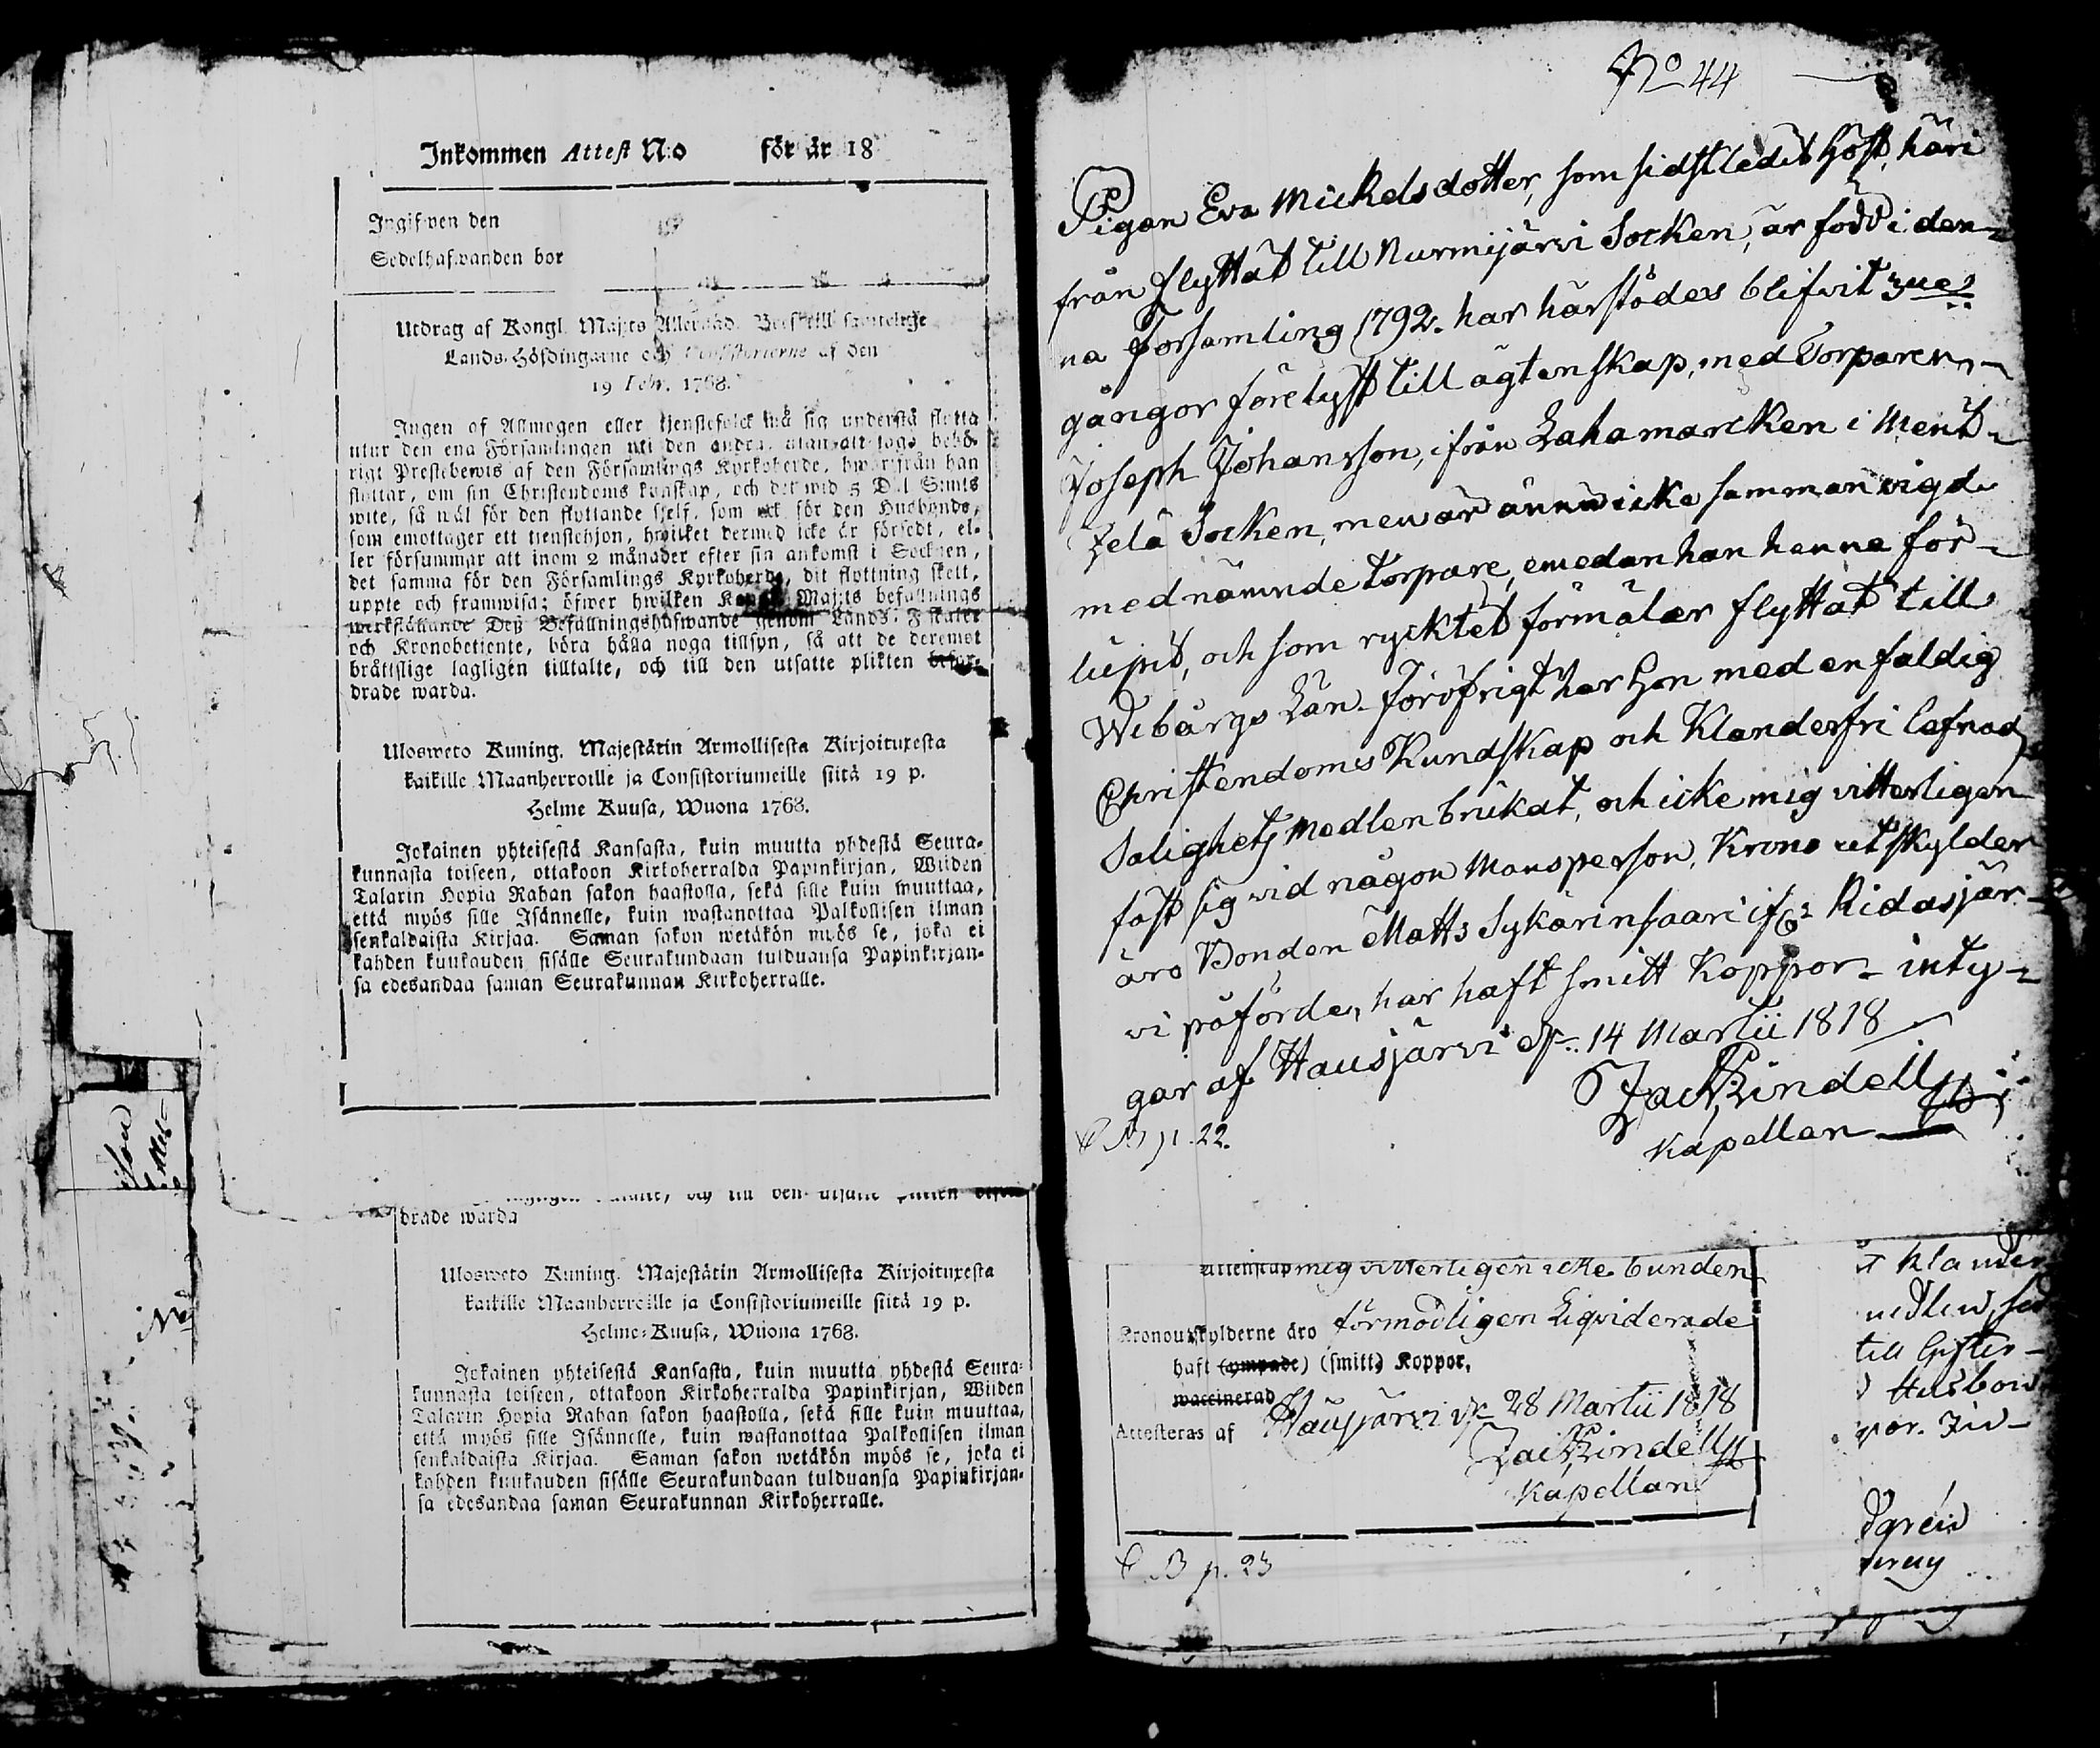 Inkommen Attest N:o för år 18
Ingifwen den
Sedelhafwanden bor
Utdrag af Kongl. Maj:ts Allernåd. Bref till samtelige
Lands-Höfdingarne och Consistorierne af den
19 Febr. 1768.
Ingen af Allmogen eller tjenstefolck må sig understå flytta
utur den ena Församlingen uti den andra, utan att taga behö-
rigt Prestebewis af den Församlings Kyrkoherde, hwarifrån han
flyttar, om sin Christendoms kunskap, och det wid 5 Dal. S:mts
wite, så wäl för den flyttande sjelf, som ock för den Husbonde,
som emottager ett tienstehjon, hwilket dermed icke är försedt, el-
ler försummar att inom 2 månader efter sin ankomst i Socknen,
det samma för den Församlings Kyrkoherde, dit flyttning skett,
uppte och framwisa; öfwer hwilken Kongl. Maj:ts befallnings
werkställande Deß Befallningshafwande genom Lands-Fiskaler
och Kronobetjente, böra hålla noga tillsyn, så att de deremot
bråttslige lagligen tilltalte, och till den utsatte plikten befor-
drade warda.
Ulosweto Kuning. Majestätin Armollisesta Kirjoituxesta
kaikille Maanherroille ja Consistoriumeille siitä 19 p.
Helme Kuusa, Wuona 1768.
Jokainen yhteisestä Kansasta, kuin muutta yhdestä Seura-
kunnasta toiseen, ottakoon Kirkoherralda Papinkirjan, Wiiden
Talarin Hopia Rahan sakon haastolla, sekä sille kuin muuttaa,
että myös sille Isännelle, kuin wastanottaa Palkollisen ilman
senkaldaista Kirjaa. Saman sakon wetäkön myös se, joka ei
kahden kuukauden sisälle Seurakundaan tulduansa Papinkirjan-
sa edesandaa saman Seurakunnan Kirkoherralle.
drade warda
Ulosweto Kuning. Majestätin Armollisesta Kirjoituxesta
kaikille Maanherroille ja Consistoriumeille siitä 19 p.
Helme-Kuusa, Wuona 1768.
Jokainen yhteisestä Kansasta, kuin muutta yhdestä Seura-
kunnasta toiseen, ottakoon Kirkoherralda Papinkirjan, Wiiden
Talarin Hopia Rahan sakon haastolla, sekä sille kuin muuttaa,
että myös sille Isännelle, kuin wastanottaa Palkollisen ilman
senkaldaista Kirjaa. Saman sakon wetäkön myös se, joka ei
kahden kuukauden sisälle Seurakundaan tulduansa Papinkirjan-
sa edesandaa saman Seurakunnan Kirkoherralle.
No 44
Pigan Eva Mickelsdotter, som sidstledit höst, häri
från flyttat till Nurmijärvi Socken, är född i den-
na Församling 1792. har härstädes blifvit 3ne
gångor förelyst till ägtenskap, med Torparen
Joseph Johansson, ifrån Lahamarcken i Ment-
zelä Socken, men är ännu icke samman vigd
med nämnde torpare, emedan han henne för-
lupit, och som rycktet förmäler flyttat till
Wiborgs Län. Föröfrigt har hon med enfaldig
Christendoms Kundskap och Klanderfri lefnad,
Salighets medlen brukat, och icke mig vitterligen
fäst sig vid någon Mansperson, Krono utskylder
äro Bonden Matts Sykärinsaari if:r Ridasjär-
vi påförde, har haft smitt Koppor - inty-
gar af Hausjärvi d. 14 Martii 1818
Zach Lindell
Kapellan
C B p. 22.
mig vitterligen icke bunden
Kronoutskylderne äro förmodligen Liqviderade
haft (ympade) (smitt) Koppor,
waccinerad
Attesteras af Hausjärvi d. 28 Martii 1818
Zach Lindell
Kapellan
C. B p. 23
till